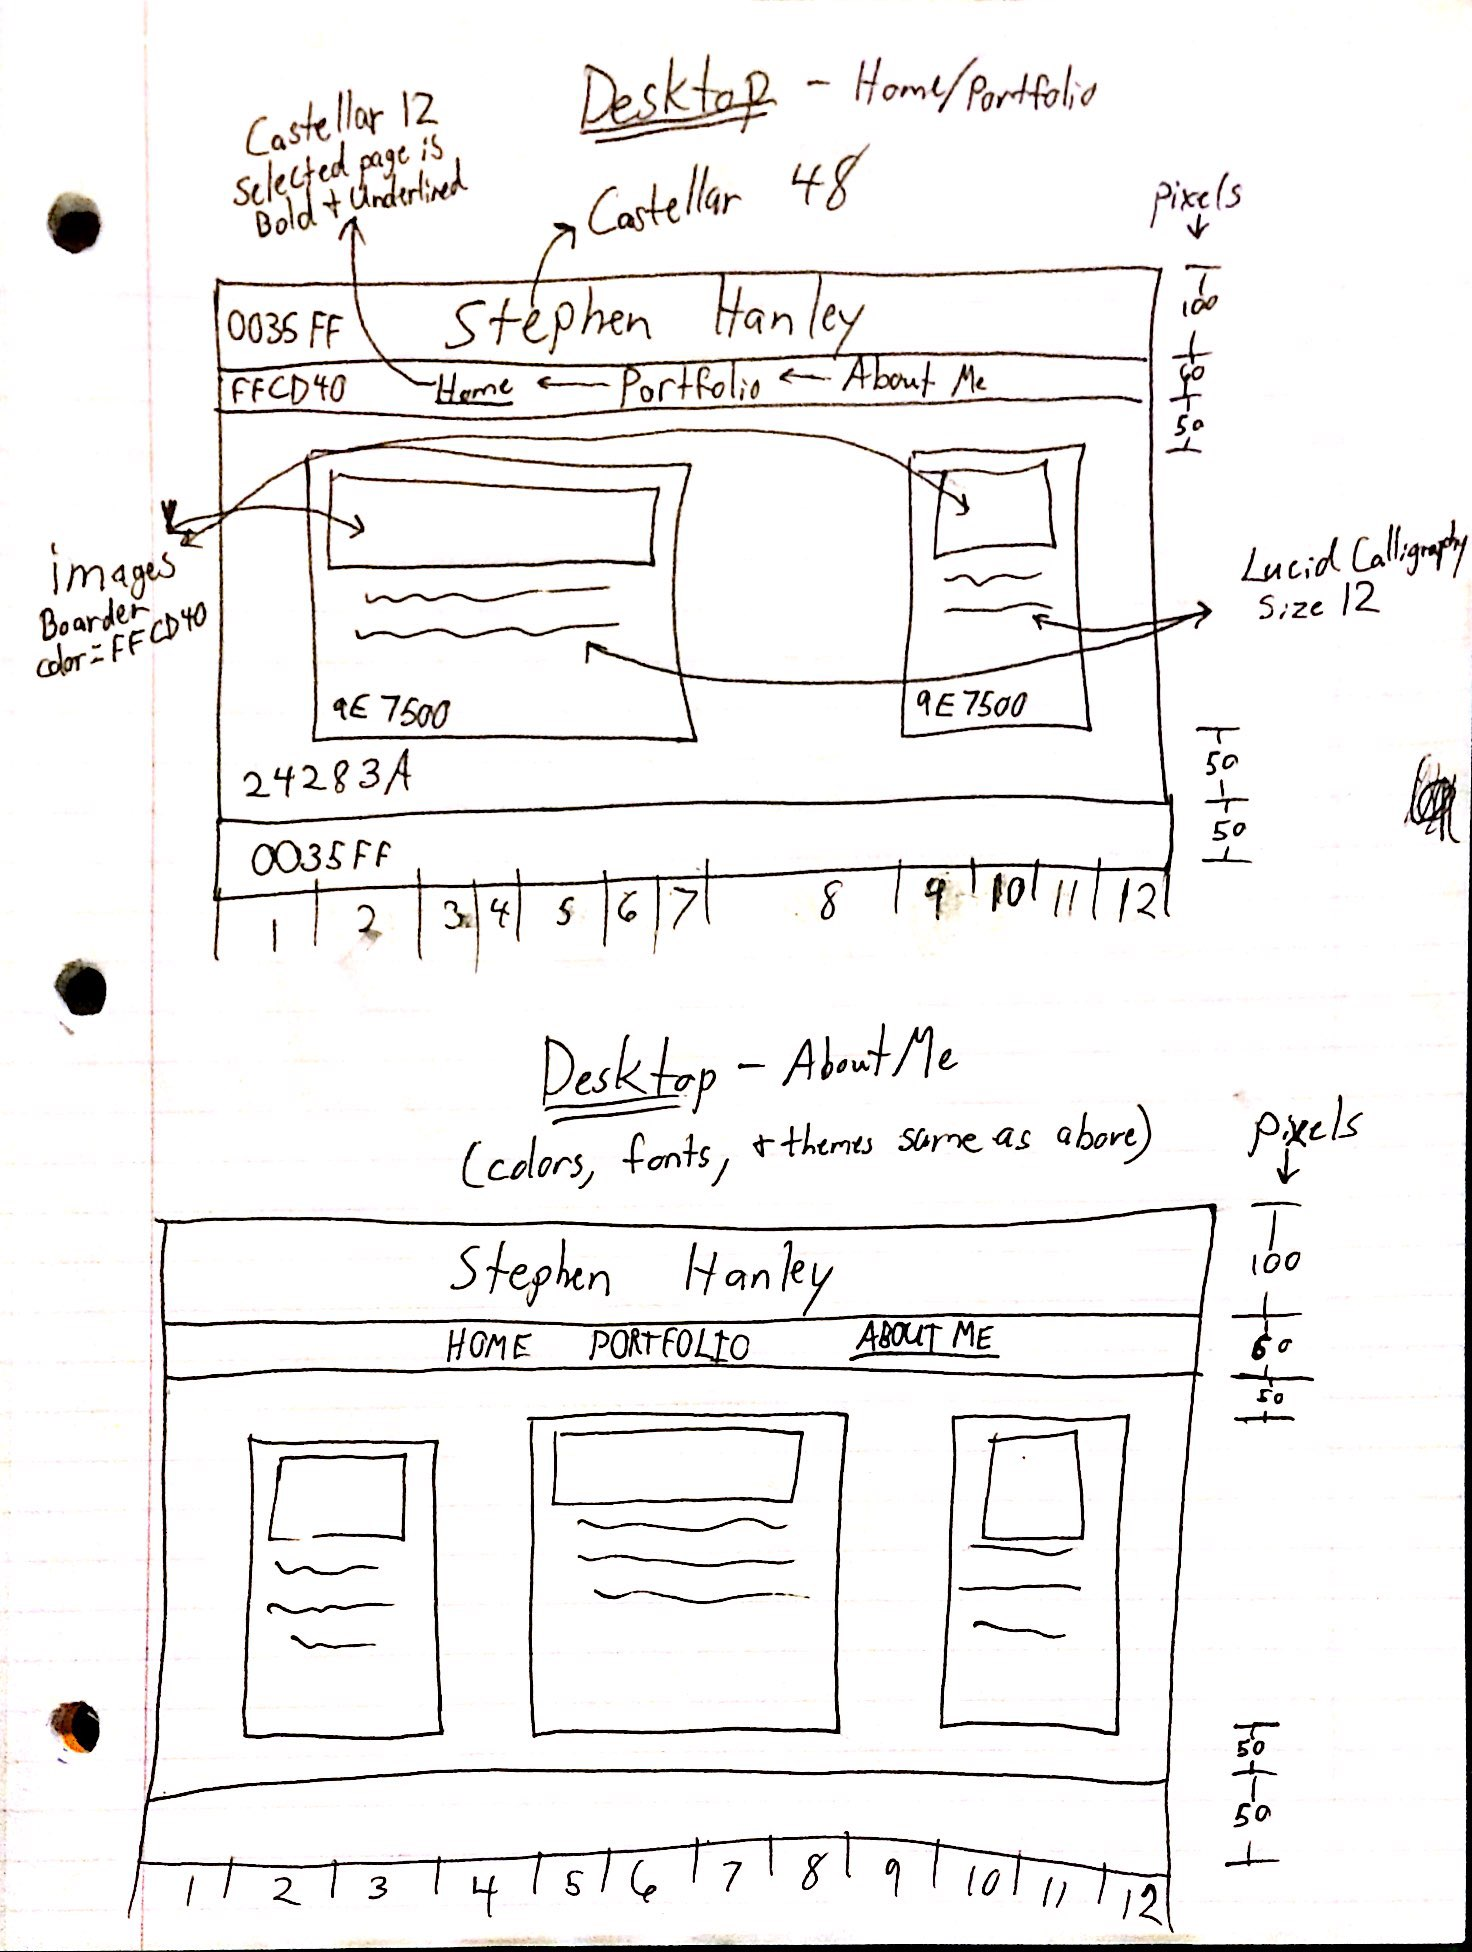 Desktop - Home/Portfolio
Castellar 12
selected page is
Bold + Underlined
Castellar 48
pixels
0035FF
Stephen Hanley
100
FFCD40
Home
Portfolio
About Me
60
50
images
Boarder
color=FFCD40
Lucid Calligraphy
Size 12
9E7500
9E7500
24283A
50
0035FF
50
1 2 3 4 5 6 7 8 9 10 11 12
Desktop - About Me
(colors, fonts, + themes same as above)
pixels
Stephen Hanley
100
HOME PORTFOLIO ABOUT ME
60
50
50
50
1 2 3 4 5 6 7 8 9 10 11 12